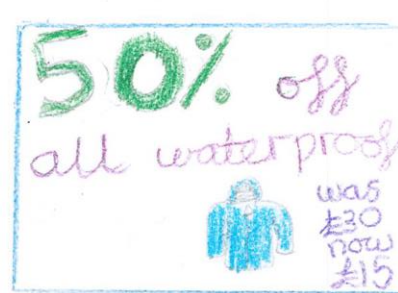 50% off
all waterproof
was
£30
now
£15